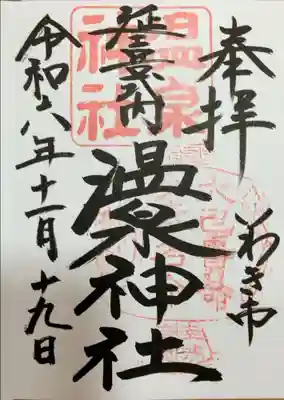 奉拝
いわき市
延喜式内
温泉神社
令和六年十一月十九日
温泉
神社